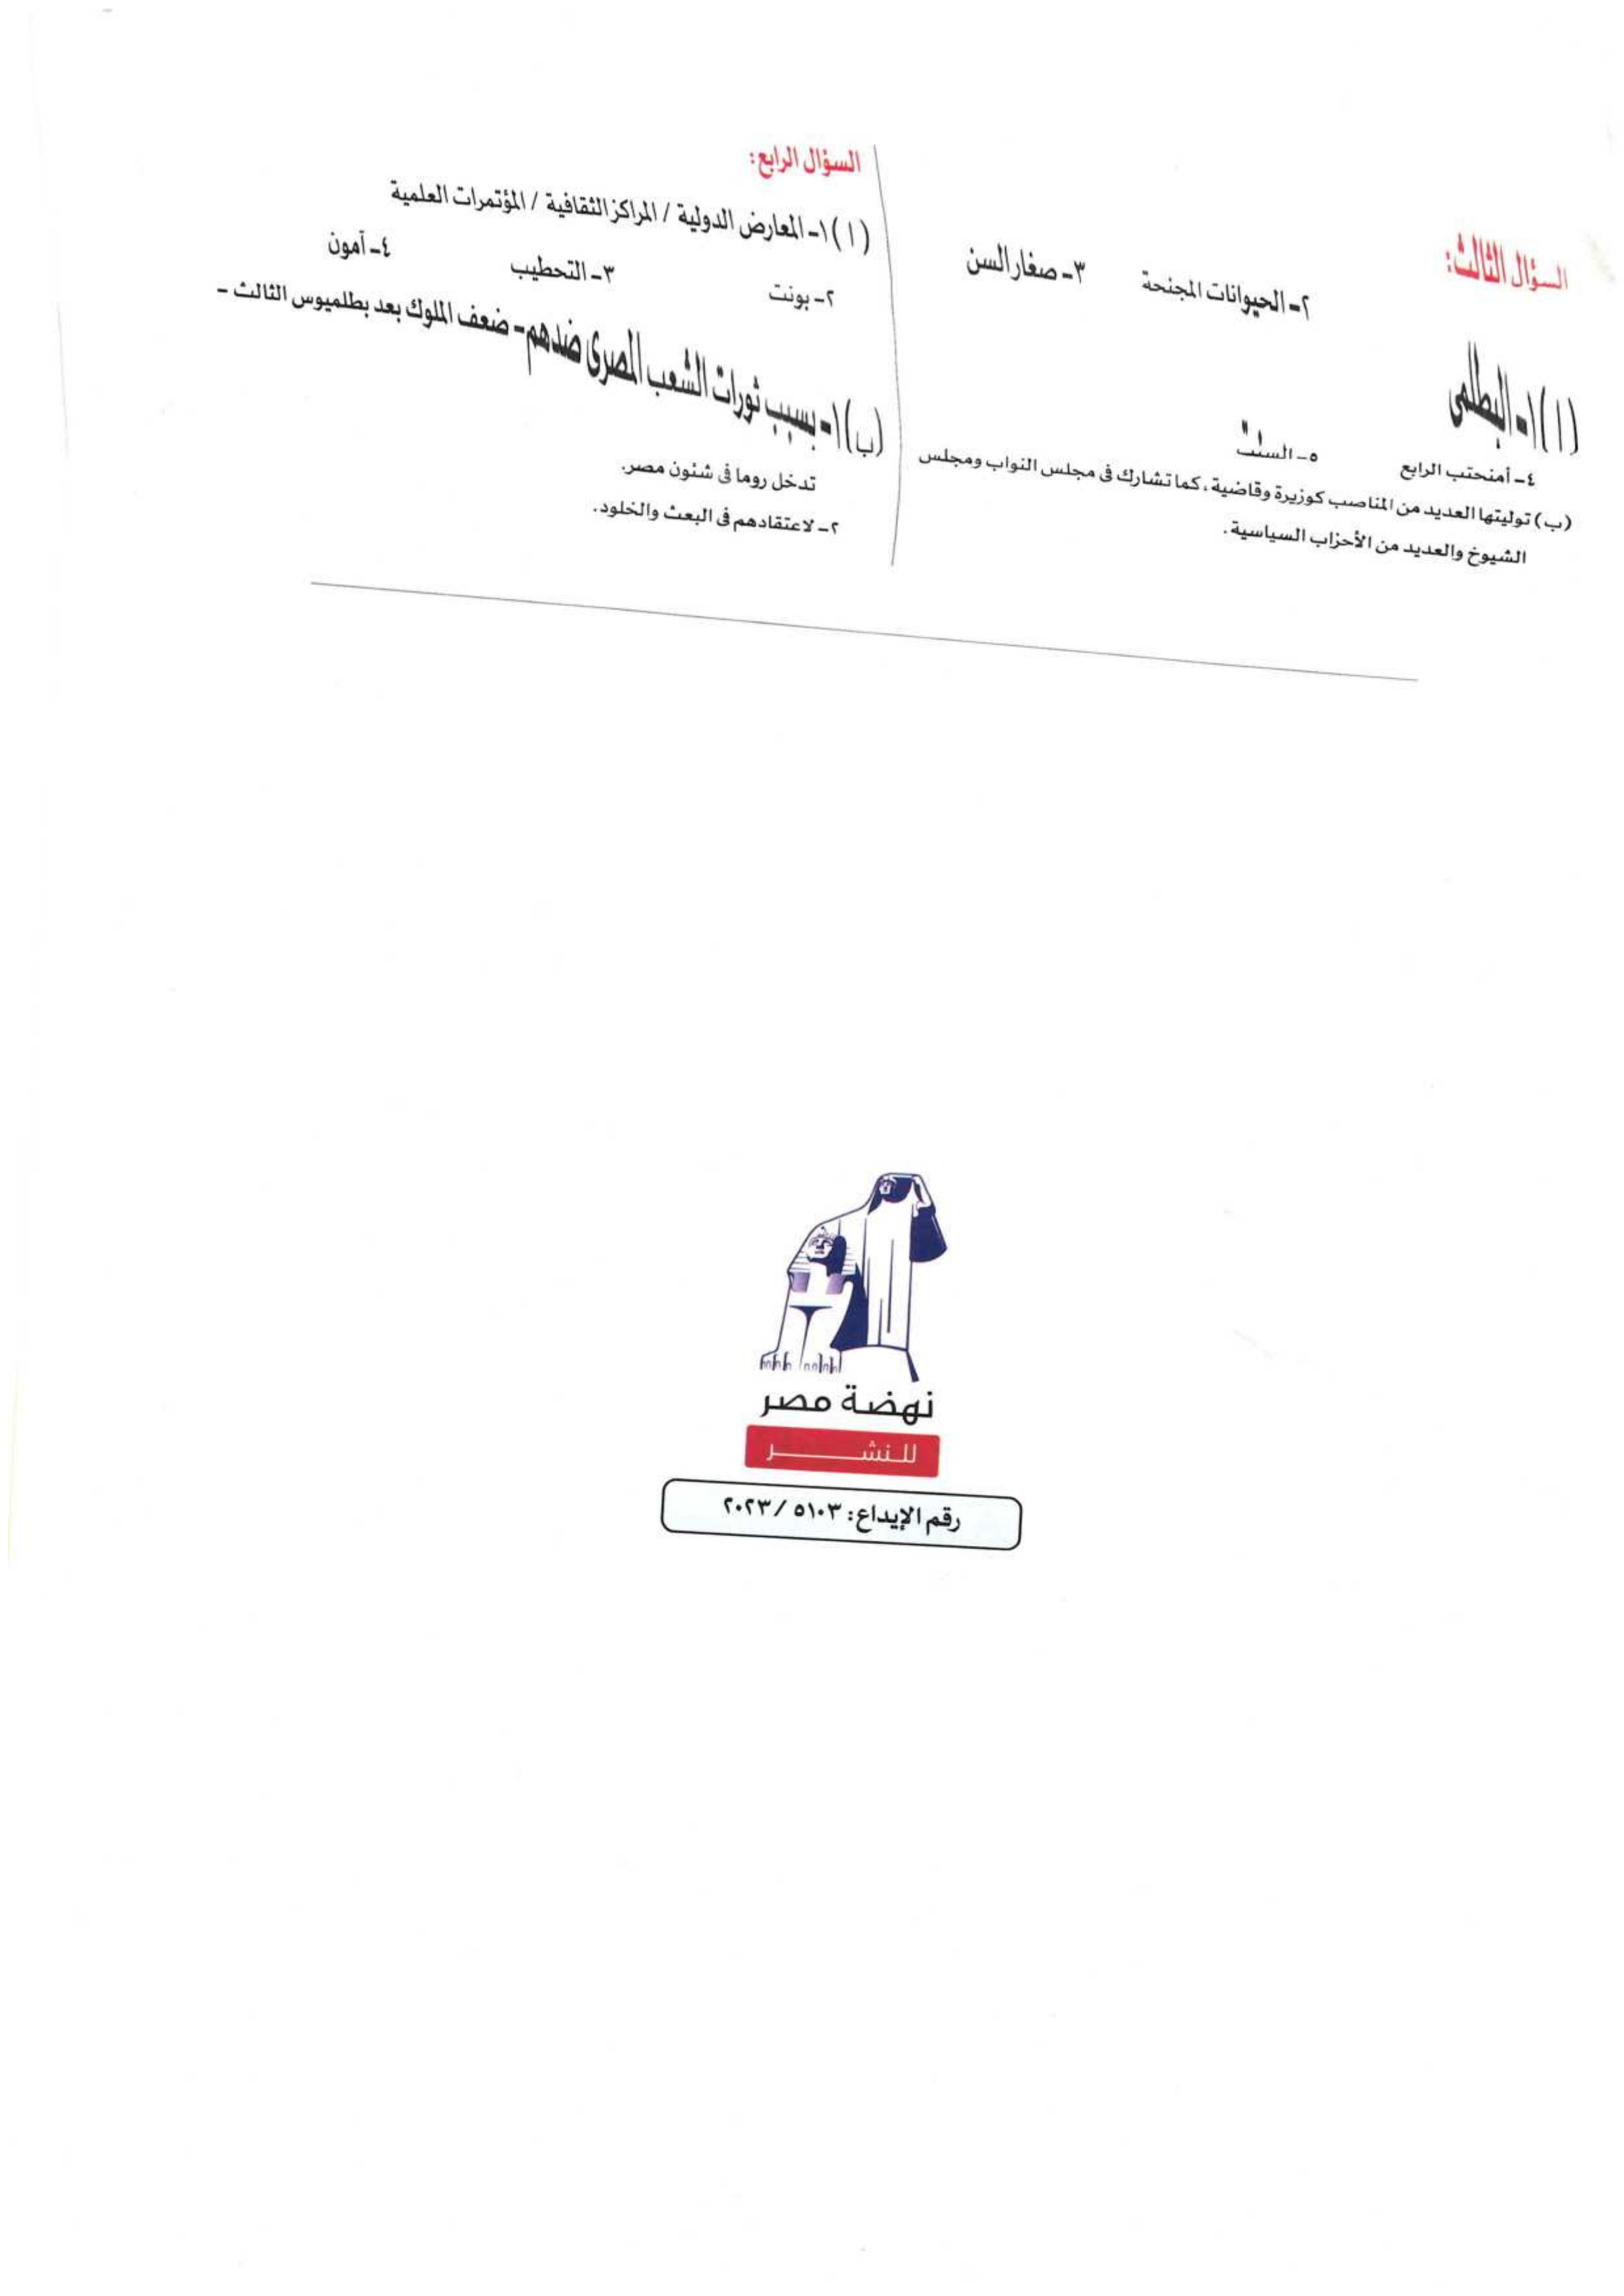 السؤال الثالث:
(ا) ١- البطلمى ٢- الحيوانات المجنحة ٣- صغار السن
٤- أمنحتب الرابع ٥- السنت
(ب) توليتها العديد من المناصب كوزيرة وقاضية، كما تشارك فى مجلس النواب ومجلس
الشيوخ والعديد من الأحزاب السياسية.
السؤال الرابع:
(ا) ١- المعارض الدولية / المراكز الثقافية / المؤتمرات العلمية
٢- بونت ٣- التحطيب ٤- آمون
(ب) ١- بسبب ثورات الشعب المصرى ضدهم - ضعف الملوك بعد بطلميوس الثالث -
تدخل روما فى شئون مصر.
٢- لاعتقادهم فى البعث والخلود.
نهضة مصر
للنشر
رقم الإيداع: ٥١٠٣ / ٢٠٢٣